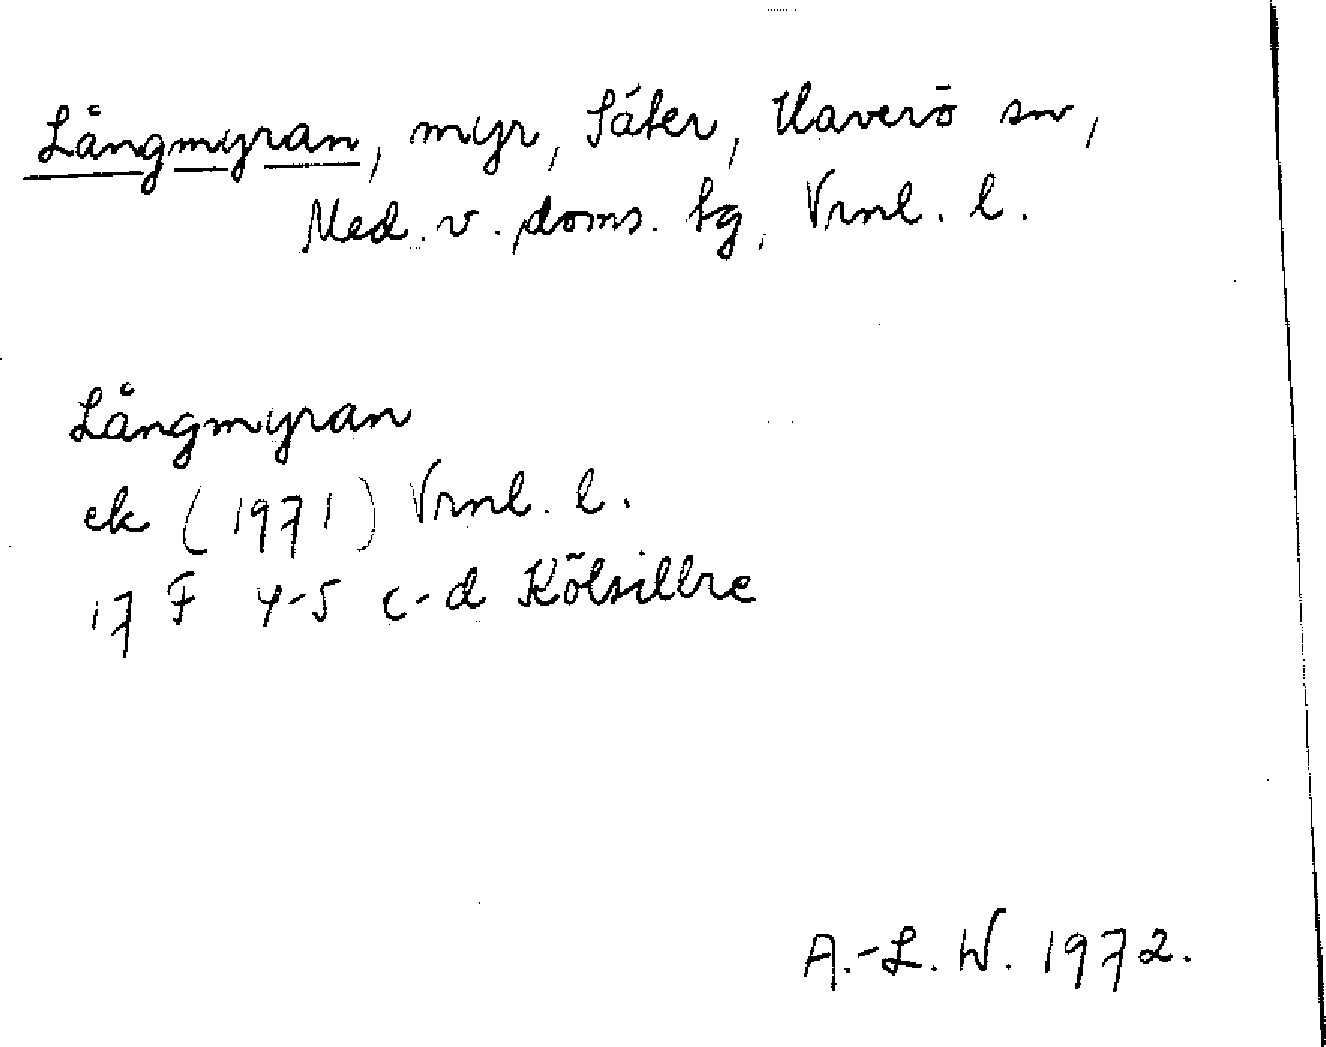 Långmyran, myr, Säter, Haverö sn,
Med. v. doms. tg, Vrnl. l.
Långmyran
ek (1971) Vrnl. l.
17 F 4-5 c-d Kölsillre
A.-L. W. 1972.